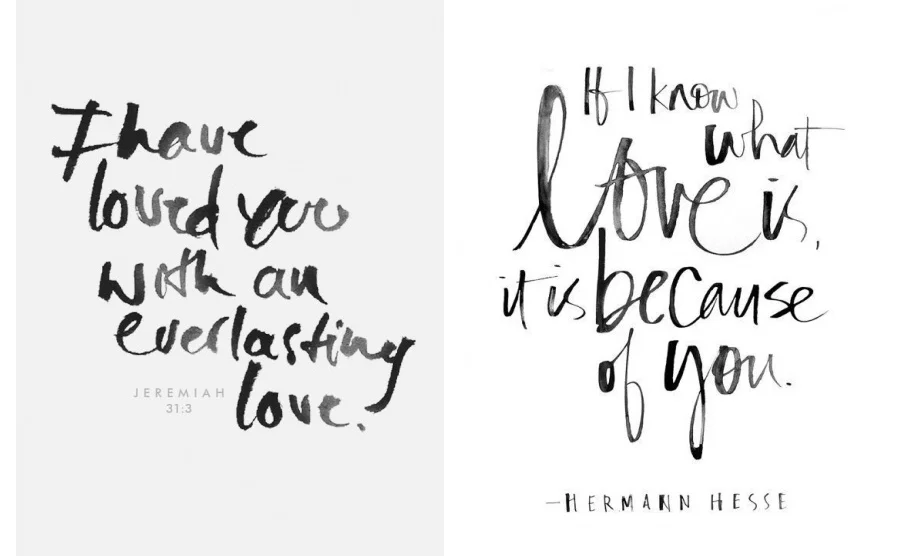 I have
loved you
with an
everlasting
love.
JEREMIAH
31:3
If I know
what
love is,
it is because
of you.
—HERMANN HESSE